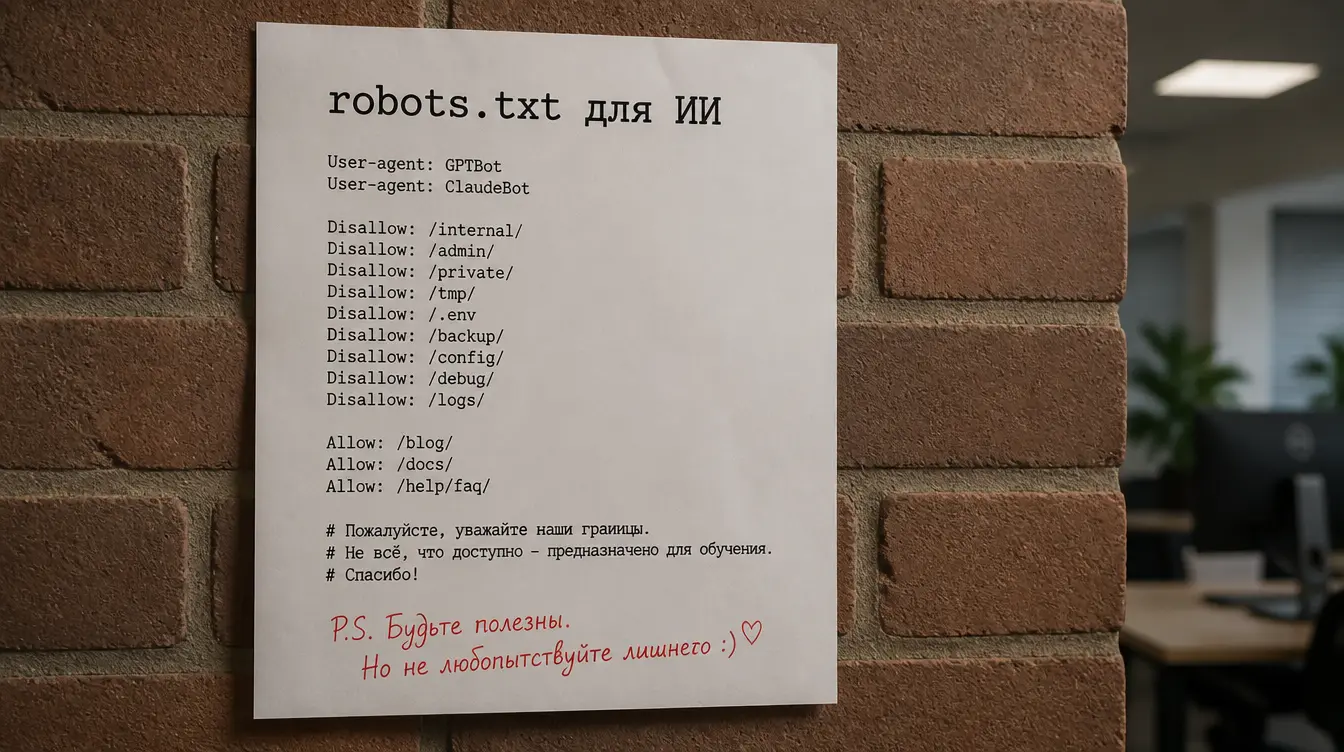 robots.txt для ИИ
User-agent: GPTBot
User-agent: ClaudeBot
Disallow: /internal/
Disallow: /admin/
Disallow: /private/
Disallow: /tmp/
Disallow: /.env
Disallow: /backup/
Disallow: /config/
Disallow: /debug/
Disallow: /logs/
Allow: /blog/
Allow: /docs/
Allow: /help/faq/
# Пожалуйста, уважайте наши граиицы.
# Не всё, что доступно – предназначено для обучения.
# Спасибо!
P.S. Будьте полезны.
Но не любопытствуйте лишнего :) ♡